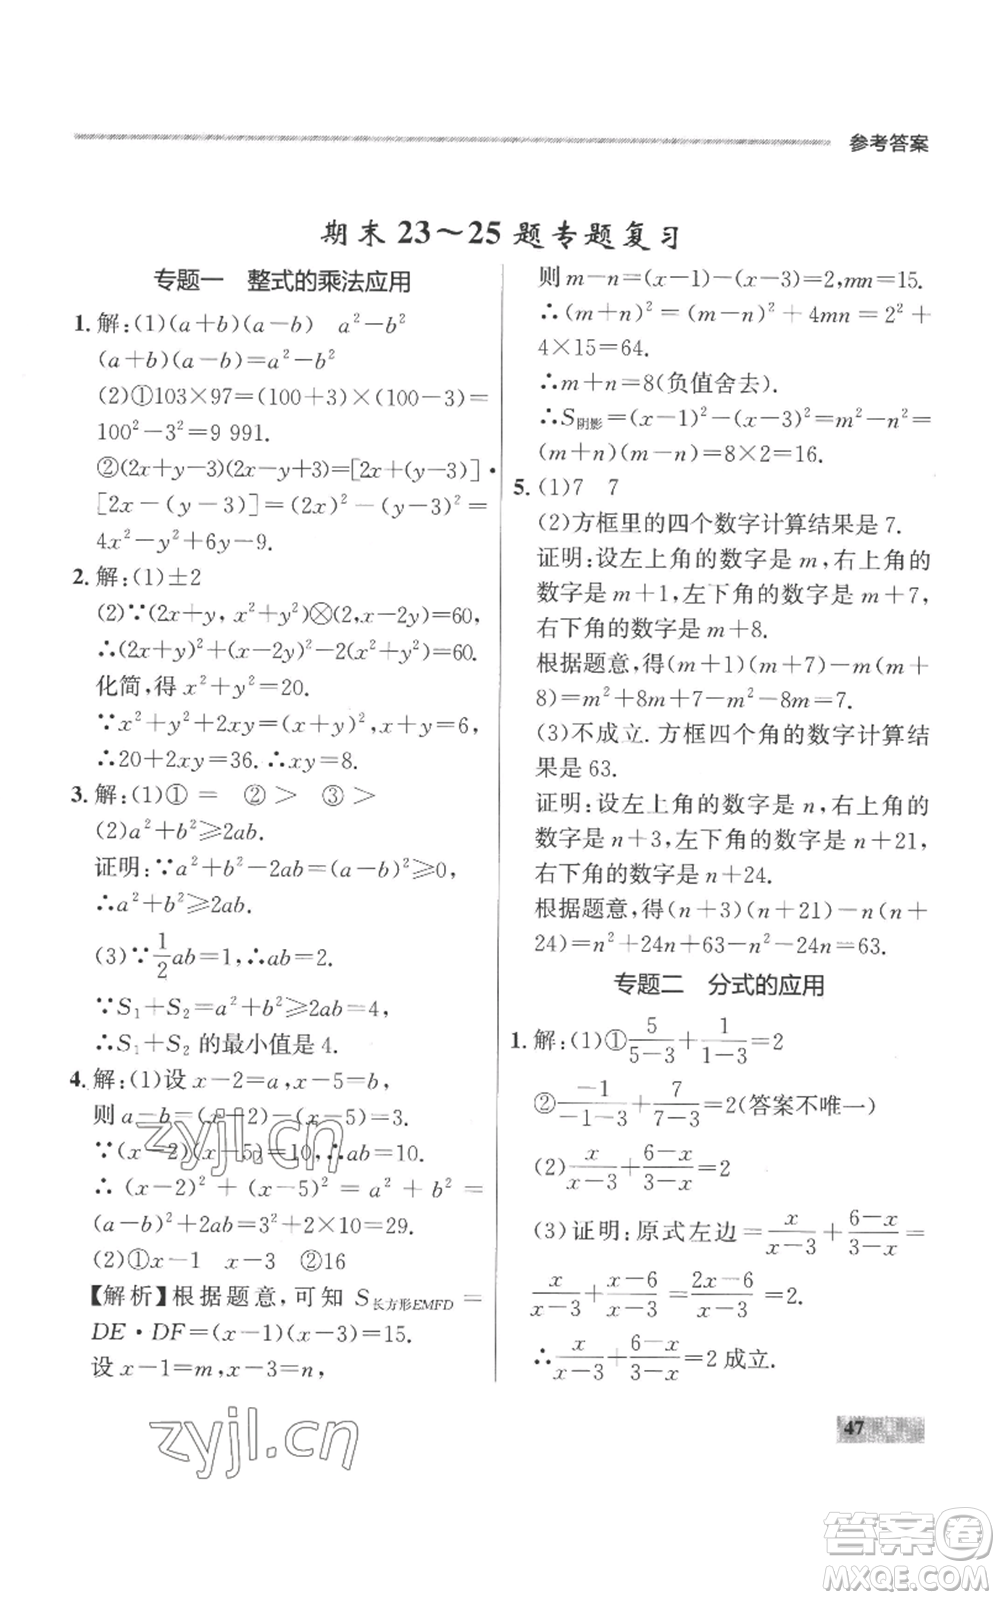 参考答案
期末 23～25 题专题复习
专题一　整式的乘法应用
1. 解:(1)(a+b)(a-b)　a²-b²
(a+b)(a-b)=a²-b²
(2)①103×97=(100+3)×(100-3)=
100²-3²=9 991.
②(2x+y-3)(2x-y+3)=[2x+(y-3)]·
[2x-(y-3)]=(2x)²-(y-3)²=
4x²-y²+6y-9.
2. 解:(1)±2
(2)∵(2x+y, x²+y²)⊗(2,x-2y)=60,
∴(2x+y)²+(x-2y)²-2(x²+y²)=60.
化简,得 x²+y²=20.
∵x²+y²+2xy=(x+y)²,x+y=6,
∴20+2xy=36.∴xy=8.
3. 解:(1)①＝　②＞　③＞
(2)a²+b²≥2ab.
证明:∵a²+b²-2ab=(a-b)²≥0,
∴a²+b²≥2ab.
(3)∵1/2ab=1,∴ab=2.
∵S₁+S₂=a²+b²≥2ab=4,
∴S₁+S₂ 的最小值是 4.
4. 解:(1)设 x-2=a,x-5=b,
则 a-b=(x-2)-(x-5)=3.
∵(x-2)(x-5)=10,∴ab=10.
∴(x-2)²+(x-5)²=a²+b²=
(a-b)²+2ab=3²+2×10=29.
(2)①x-1　x-3　②16
【解析】根据题意,可知 S长方形EMFD=
DE·DF=(x-1)(x-3)=15.
设 x-1=m,x-3=n,
则 m-n=(x-1)-(x-3)=2,mn=15.
∴(m+n)²=(m-n)²+4mn=2²+
4×15=64.
∴m+n=8(负值舍去).
∴S阴影=(x-1)²-(x-3)²=m²-n²=
(m+n)(m-n)=8×2=16.
5. (1)7　7
(2)方框里的四个数字计算结果是 7.
证明:设左上角的数字是 m,右上角的
数字是 m+1,左下角的数字是 m+7,
右下角的数字是 m+8.
根据题意,得(m+1)(m+7)-m(m+
8)=m²+8m+7-m²-8m=7.
(3)不成立. 方框四个角的数字计算结
果是 63.
证明:设左上角的数字是 n,右上角的
数字是 n+3,左下角的数字是 n+21,
右下角的数字是 n+24.
根据题意,得(n+3)(n+21)-n(n+
24)=n²+24n+63-n²-24n=63.
专题二　分式的应用
1. 解:(1)①5/(5-3)+1/(1-3)=2
②-1/(-1-3)+7/(7-3)=2(答案不唯一)
(2)x/(x-3)+(6-x)/(3-x)=2
(3)证明:原式左边=x/(x-3)+(6-x)/(3-x)=
x/(x-3)+(x-6)/(x-3)=(2x-6)/(x-3)=2.
∴x/(x-3)+(6-x)/(3-x)=2 成立.
47
zyjl.cn
zyjl.cn
答案卷
MXQE.COM